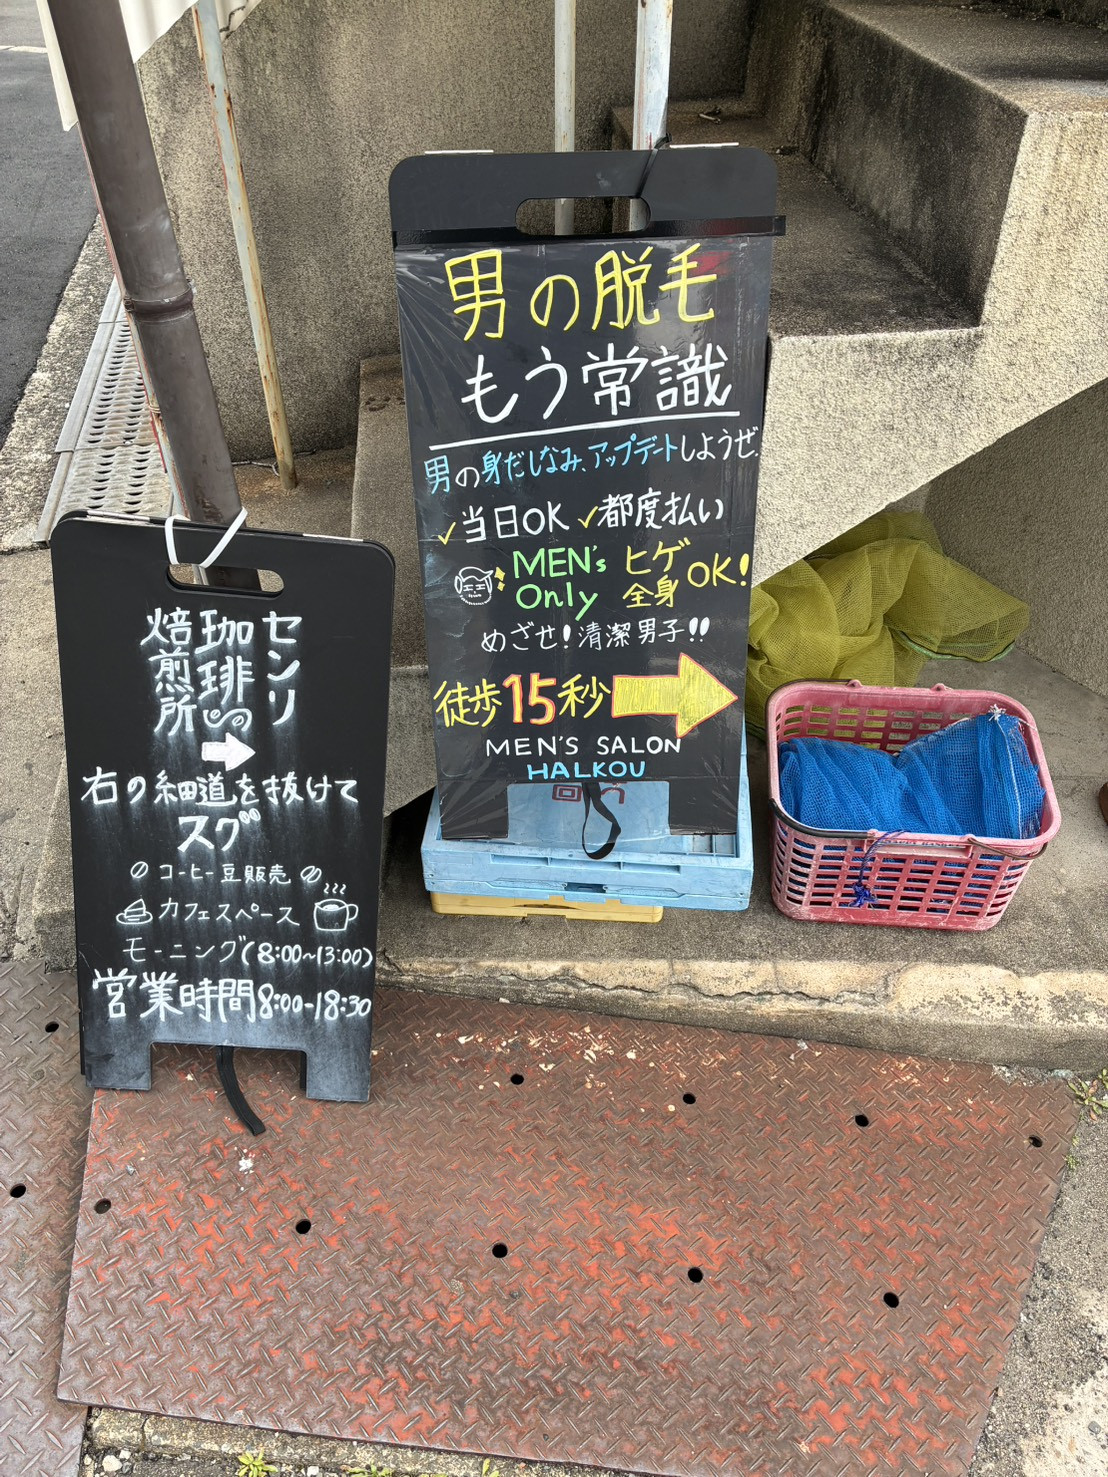 センリ
珈琲の
焙煎所
右の細道を抜けて
スグ
コーヒー豆販売
カフェスペース
モーニング(8:00~13:00)
営業時間8:00-18:30
男の脱毛
もう常識
男の身だしなみ、アップデートしようぜ.
✓当日OK ✓都度払い
MEN's Only
ヒゲ 全身 OK!
めざせ!清潔男子!!
徒歩15秒
MEN'S SALON
HALKOU